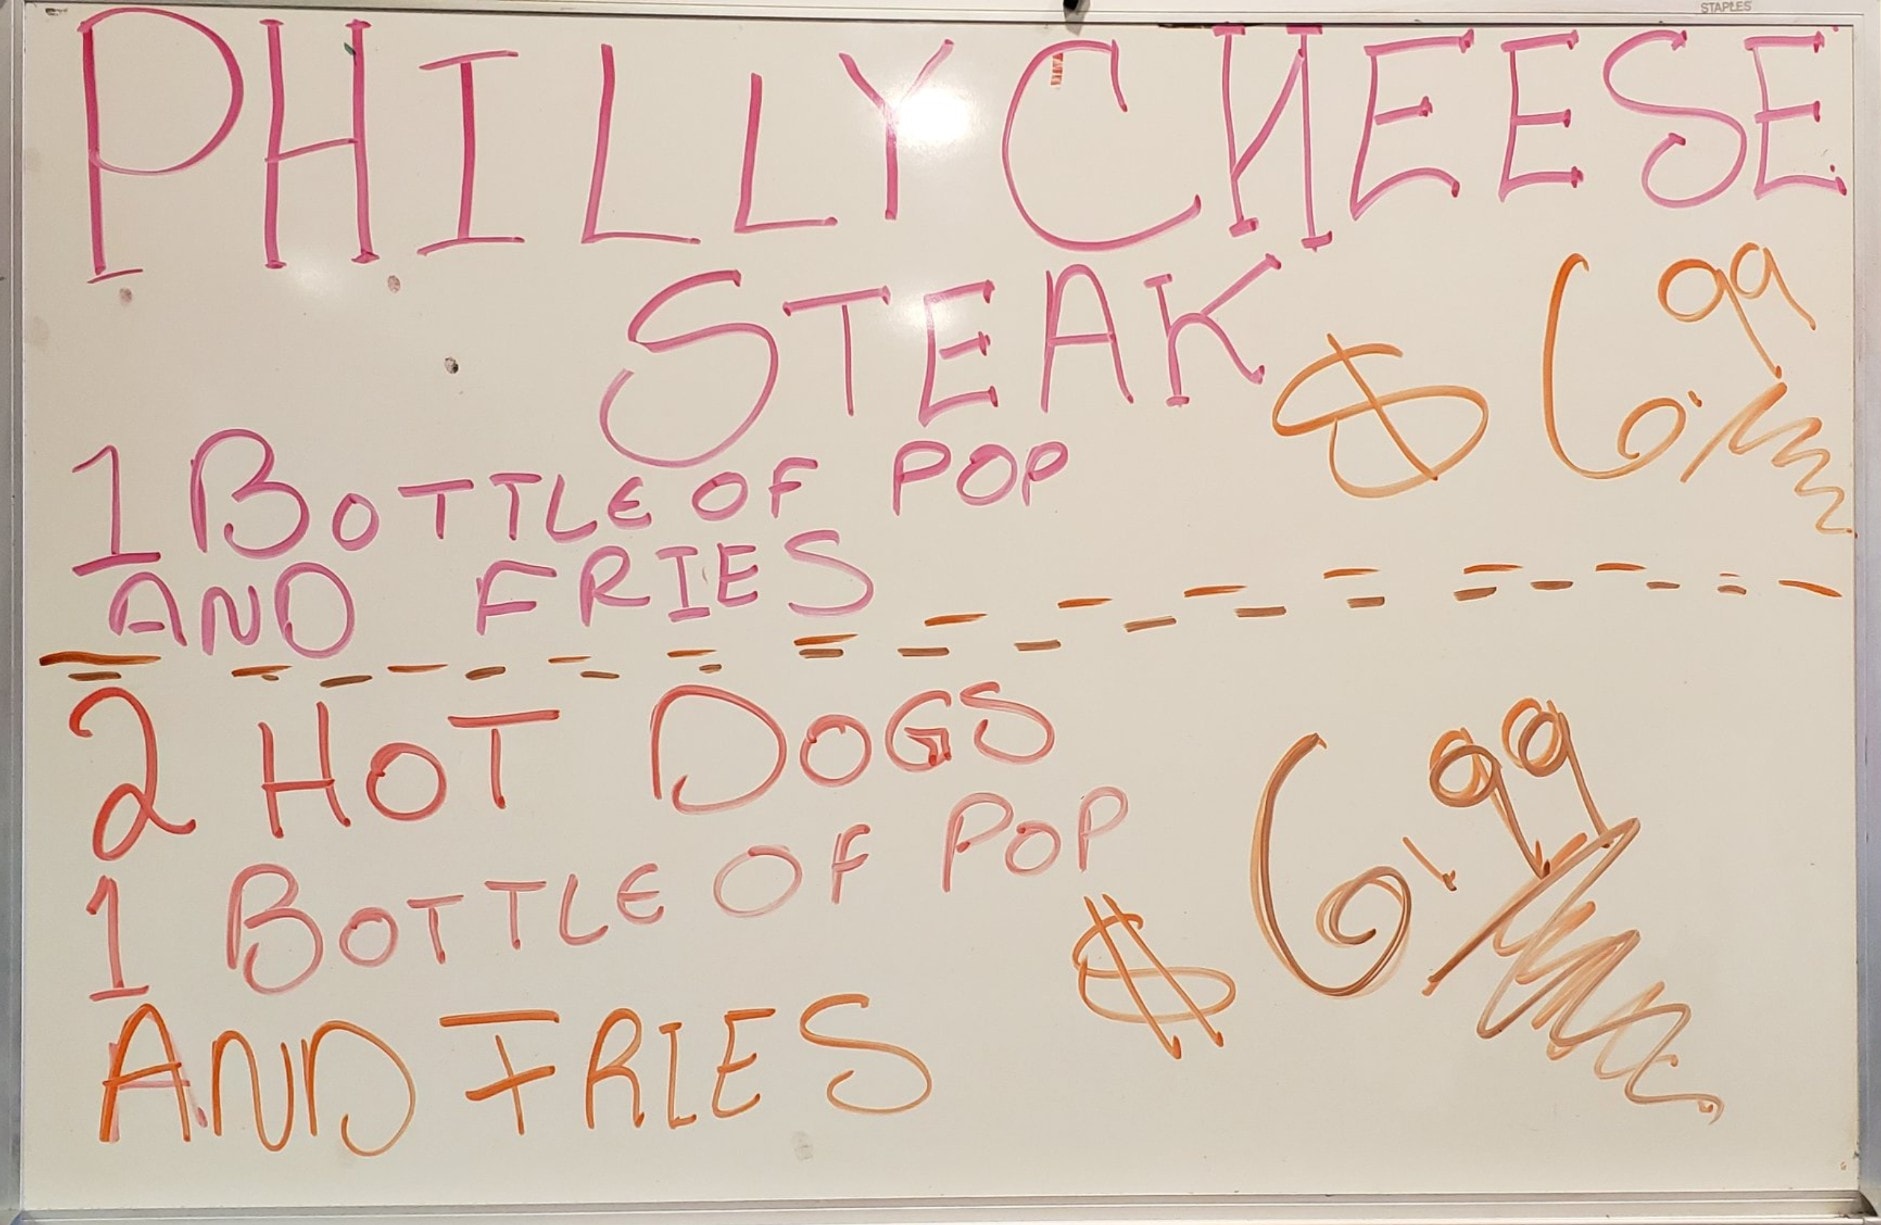 STAPLES
PHILLY CHEESE
STEAK
$ 6.99
1 BOTTLE OF POP
AND FRIES
2 HOT DOGS
1 BOTTLE OF POP
$ 6.99
AND FRIES